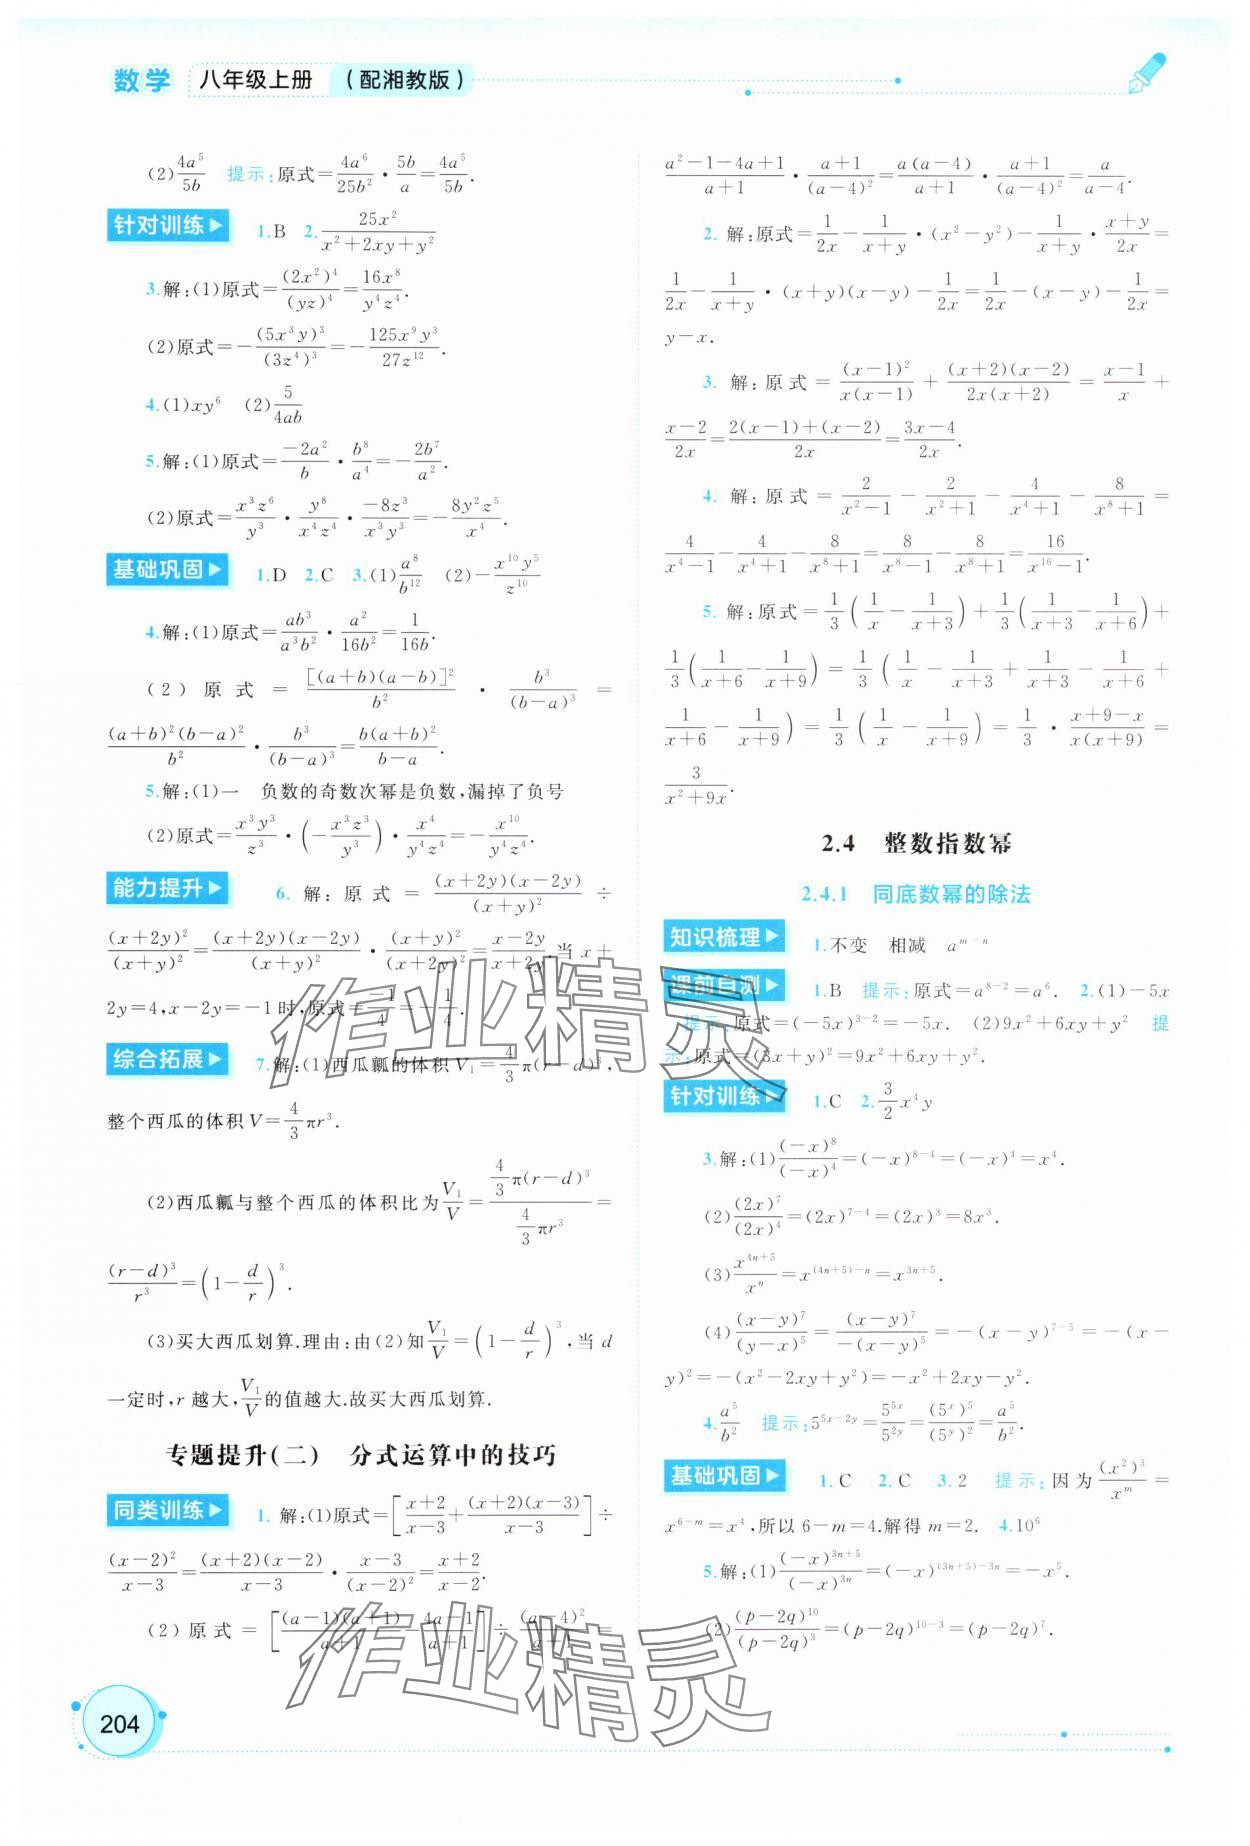 数学 八年级上册 （配湘教版）
(2)4a⁵/5b 提示:原式=4a⁶/25b²·5b/a=4a⁵/5b.
针对训练 1.B 2.25x²/(x²+2xy+y²)
3.解:(1)原式=(2x²)⁴/(yz)⁴=16x⁸/y⁴z⁴.
(2)原式=-(5x³y)³/(3z⁴)³=-125x⁹y³/27z¹².
4.(1)xy⁶ (2)5/4ab
5.解:(1)原式=-2a²/b·b⁸/a⁴=-2b⁷/a².
(2)原式=x³z⁶/y³·y⁸/x⁴z⁴·-8z³/x³y³=-8y²z⁵/x⁴.
基础巩固 1.D 2.C 3.(1)a⁸/b¹² (2)-x¹⁰y⁵/z¹⁰
4.解:(1)原式=ab³/a³b²·a²/16b²=1/16b.
(2)原式=[(a+b)(a-b)]²/b²·b³/(b-a)³=
(a+b)²(b-a)²/b²·b³/(b-a)³=b(a+b)²/(b-a).
5.解:(1)一 负数的奇数次幂是负数,漏掉了负号
(2)原式=x³y³/z³·(-x³z³/y³)·x⁴/y⁴z⁴=-x¹⁰/y⁴z⁴.
能力提升 6.解:原式=(x+2y)(x-2y)/(x+y)²÷
(x+2y)²/(x+y)²=(x+2y)(x-2y)/(x+y)²·(x+y)²/(x+2y)²=(x-2y)/(x+2y).当x+
2y=4,x-2y=-1时,原式=-1/4=-1/4.
综合拓展 7.解:(1)西瓜瓤的体积V₁=4/3π(r-d)³,
整个西瓜的体积V=4/3πr³.
(2)西瓜瓤与整个西瓜的体积比为V₁/V=4/3π(r-d)³/4/3πr³=
(r-d)³/r³=(1-d/r)³.
(3)买大西瓜划算.理由:由(2)知V₁/V=(1-d/r)³,当d
一定时,r越大,V₁/V的值越大.故买大西瓜划算.
专题提升(二) 分式运算中的技巧
同类训练 1.解:(1)原式=[(x+2)/(x-3)+(x+2)(x-3)/(x-3)]÷
(x-2)²/(x-3)=(x+2)(x-2)/(x-3)·(x-3)/(x-2)²=(x+2)/(x-2).
(2)原式=[(a-1)(a+1)/(a+1)-(4a-1)/(a+1)]÷(a-4)²/(a+1)=
(a²-1-4a+1)/(a+1)·(a+1)/(a-4)²=a(a-4)/(a+1)·(a+1)/(a-4)²=a/(a-4).
2.解:原式=1/2x-1/(x+y)·(x²-y²)-1/(x+y)·(x+y)/2x=
1/2x-1/(x+y)·(x+y)(x-y)-1/2x=1/2x-(x-y)-1/2x=
y-x.
3.解:原式=(x-1)²/x(x-1)+(x+2)(x-2)/2x(x+2)=(x-1)/x+
(x-2)/2x=[2(x-1)+(x-2)]/2x=(3x-4)/2x.
4.解:原式=2/(x²-1)-2/(x²+1)-4/(x⁴+1)-8/(x⁸+1)=
4/(x⁴-1)-4/(x⁴+1)-8/(x⁸+1)=8/(x⁸-1)-8/(x⁸+1)=16/(x¹⁶-1).
5.解:原式=1/3(1/x-1/(x+3))+1/3(1/(x+3)-1/(x+6))+
1/3(1/(x+6)-1/(x+9))=1/3(1/x-1/(x+3)+1/(x+3)-1/(x+6)+
1/(x+6)-1/(x+9))=1/3(1/x-1/(x+9))=1/3·(x+9-x)/x(x+9)=
3/(x²+9x).
2.4 整数指数幂
2.4.1 同底数幂的除法
知识梳理 1.不变 相减 aᵐ⁻ⁿ
课前自测 1.B 提示:原式=a⁸⁻²=a⁶. 2.(1)-5x
提示:原式=(-5x)³⁻²=-5x. (2)9x²+6xy+y² 提
示:原式=(3x+y)²=9x²+6xy+y².
针对训练 1.C 2.3/2x⁴y
3.解:(1)(-x)⁸/(-x)⁴=(-x)⁸⁻⁴=(-x)⁴=x⁴.
(2)(2x)⁷/(2x)⁴=(2x)⁷⁻⁴=(2x)³=8x³.
(3)x⁴ⁿ⁺⁵/xⁿ=x⁽⁴ⁿ⁺⁵⁾⁻ⁿ=x³ⁿ⁺⁵.
(4)(x-y)⁷/(y-x)⁵=(x-y)⁷/-(x-y)⁵=-(x-y)⁷⁻⁵=-(x-
y)²=-(x²-2xy+y²)=-x²+2xy-y².
4.a⁵/b² 提示:5^(5x-2y)=5^(5x)/5^(2y)=(5^x)⁵/(5^y)²=a⁵/b².
基础巩固 1.C 2.C 3.2 提示:因为(x²)³/xᵐ=
x⁶⁻ᵐ=x⁴,所以6-m=4.解得m=2. 4.10⁶
5.解:(1)(-x)³ⁿ⁺⁵/(-x)³ⁿ=(-x)⁽³ⁿ⁺⁵⁾⁻³ⁿ=-x⁵.
(2)(p-2q)¹⁰/(p-2q)³=(p-2q)¹⁰⁻³=(p-2q)⁷.
作业精灵
作业精灵
204